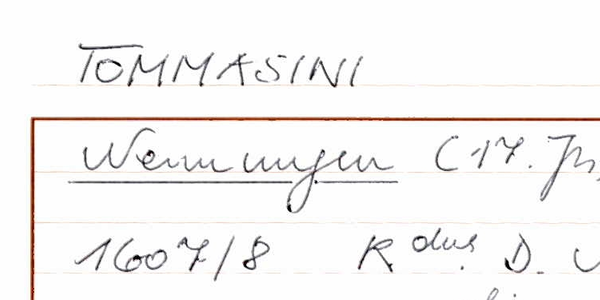 TOMMASINI
Nennungen (17. Jh.
1607/8 R.dus D.